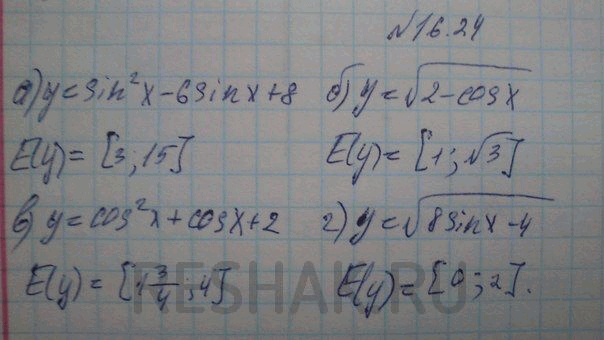 №16.24
а) y = sin²x - 6sinx + 8 б) y = √(2 - cosx)
E(y) = [3; 15] E(y) = [1; √3]
в) y = cos²x + cosx + 2 г) y = √(8sinx - 4)
E(y) = [1 3/4; 4] E(y) = [0; 2].
RESHAK.RU